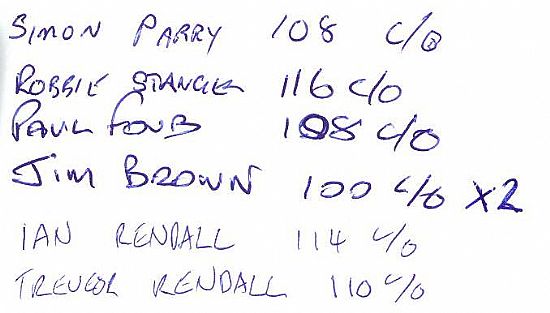 SIMON PARRY 108 C/O
ROBBIE STANGER 116 C/O
PAUL 108 C/O
JIM BROWN 100 C/O X2
IAN RENDALL 114 C/O
TREVOR RENDALL 110 C/O